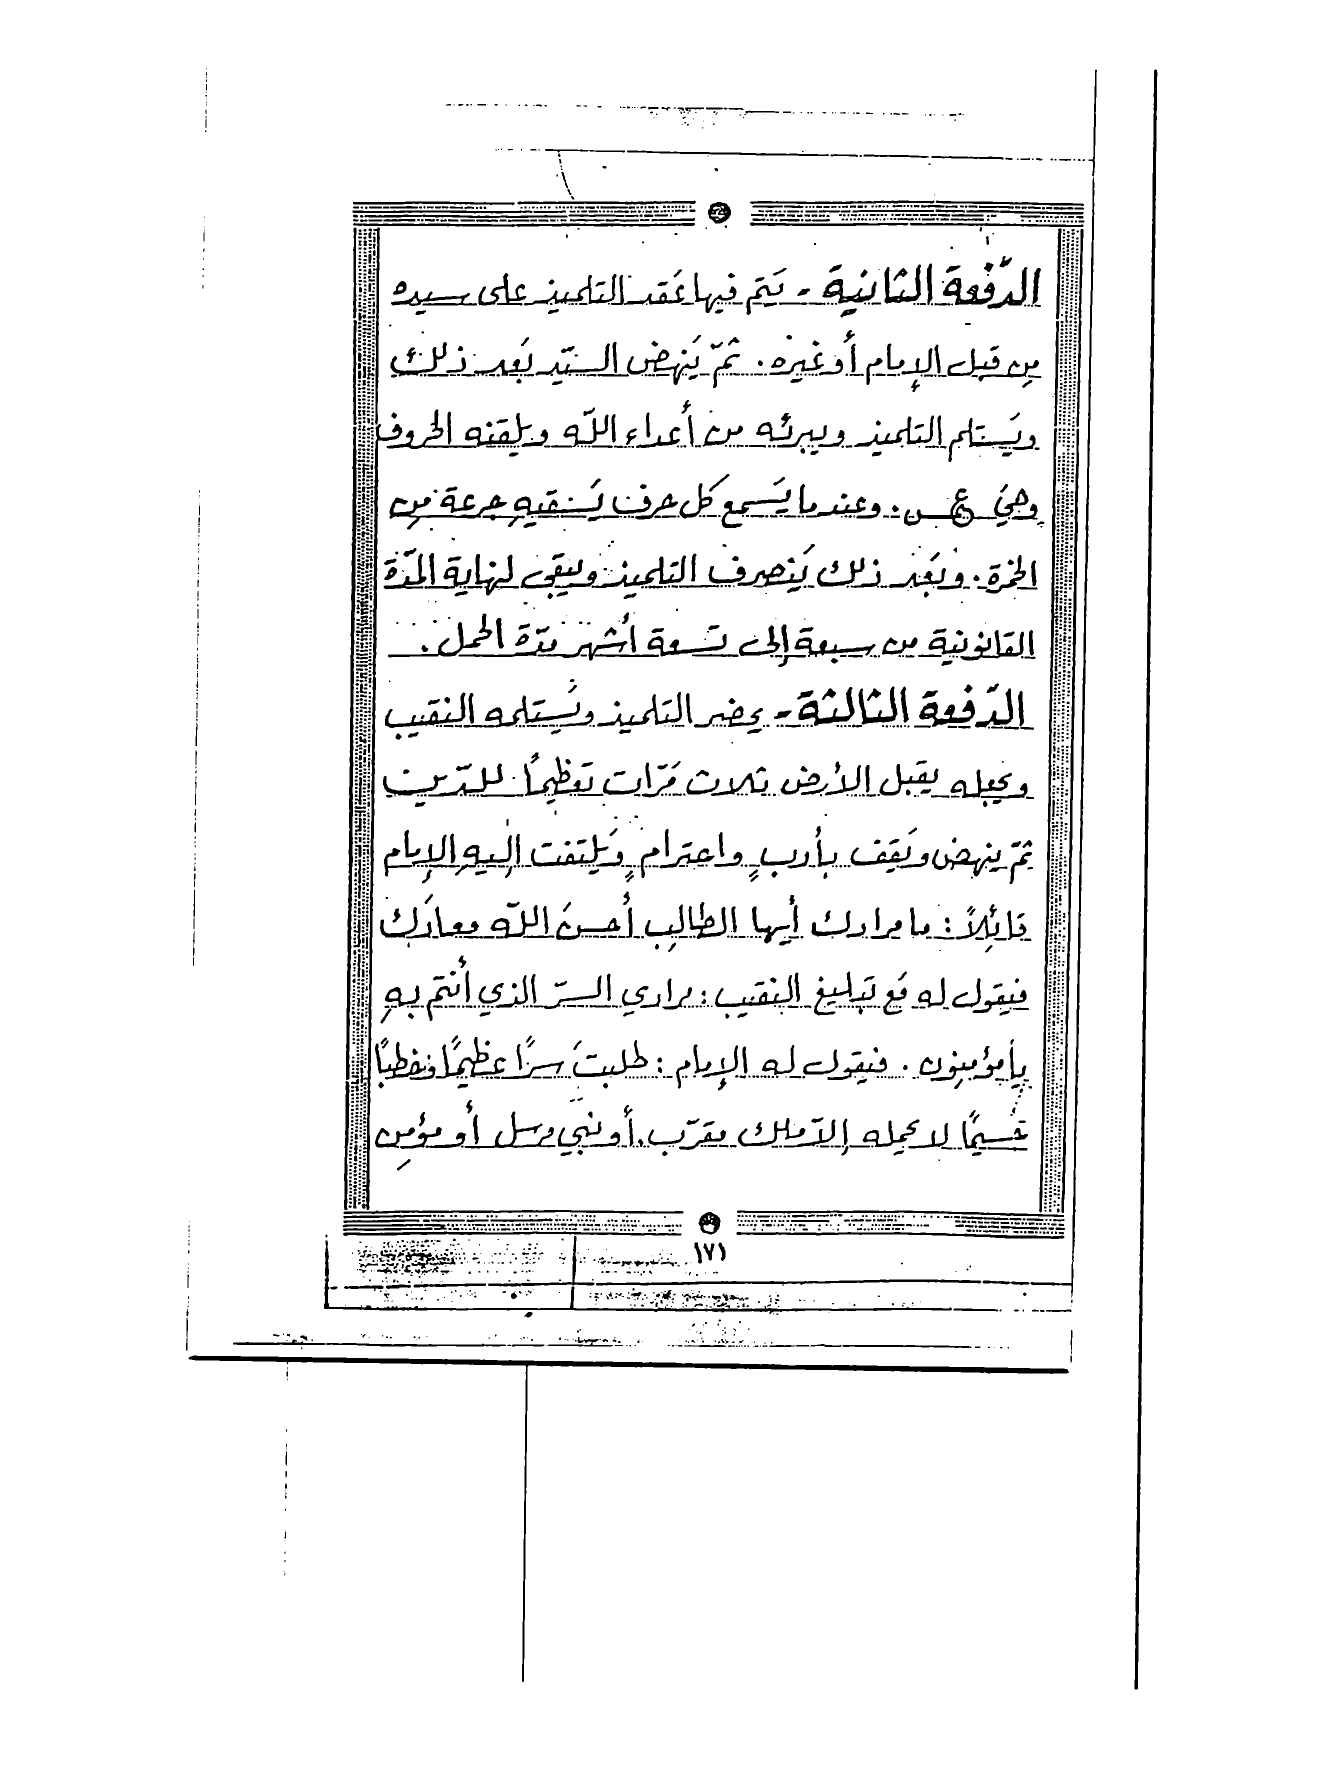 الدّفعة الثانية - يَتم فيها عَقد التلميذ على سيده
مِن قبل الإمام أو غيره. ثمّ يَنهض السيّد بَعد ذلك
ويَستلم التلميذ ويبرئه من أعداء اللّه ويلقنه الحروف
وهيَ ع س. وعندما يَسمع كل حرف يَسقيهِ جرعة مِن
الخمرة. وبَعد ذلك يَنصرف التلميذ ويبقى لنهاية المدّة
القانونية من سبعة إلى تسعة أشهر مدّة الحمل.
الدّفعة الثالثة - يحضر التلميذ ويَستلمه النقيب
ويجعله يقبل الأرض ثلاث مَرّات تعظيمًا للدّين
ثمّ ينهض ويَقف بأدبٍ واحترامٍ ويَلتفت إليهِ الإمام
قائِلاً: ما مرادك أيها الطالِب أحسنَ اللّه معادَك
فيقول له مَع تبليغ النقيب: مرادي السرّ الذي أنتم بهِ
يأمؤمِنون. فيقول له الإمام: طلبتَ سرًا عظيمًا وخطبًا
جَسيمًا لا يحمله إلاّ ملك مقرّب. أو نبي مرسل أو مؤمن
١٧١